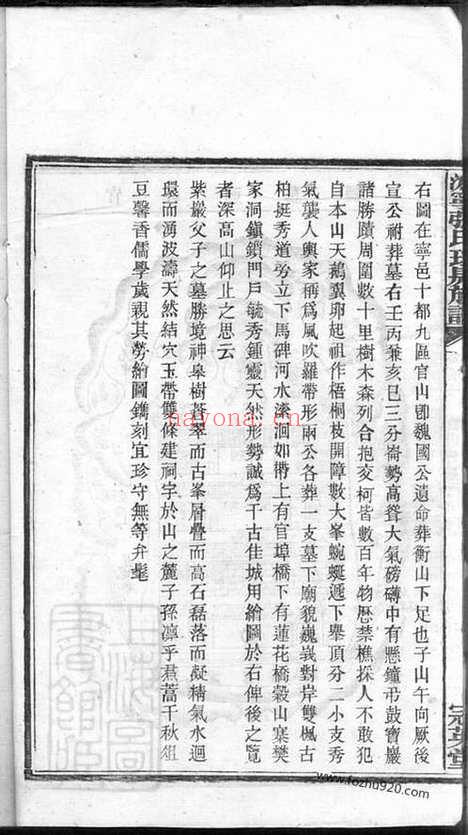 右圖在寧邑十都九區官山卽魏國公遺命葬衡山下足也子山午向厥後
宣公祔葬墓右壬丙兼亥巳三分崙勢高聳大氣磅礴中有懸鐘弔鼓寶巖
諸勝蹟周圍數十里樹木森列合抱交柯皆數百年物歷禁樵採人不敢犯
自本山天鵝翼卵起祖作梧桐枝開障數大峯蜿蜒遞下舉頂分二小支秀
氣襲人輿家稱爲風吹羅帶形兩公各葬一支墓下廟貌巍峩對岸雙楓古
柏挺秀道旁立下馬碑河水潆洄如帶上有官埠橋下有蓮花橋穀山寨樊
家洞鎭鎖門戶毓秀鍾靈天然形勢誠爲千古佳城用繪圖於右俾後之覽
者深高山仰止之思云
紫巖父子之墓勝境神皋樹薈翠而古峯層疊而高石磊落而凝精氣水迴
環而湧波濤天然結穴玉帶雙條建祠宇於山之麓子孫凜乎焄蒿千秋俎
豆馨香儒學歲親其勞繪圖鐫刻宜珍守無等弁髦
張氏
族譜
nayona.cn
www.fozhu920.com